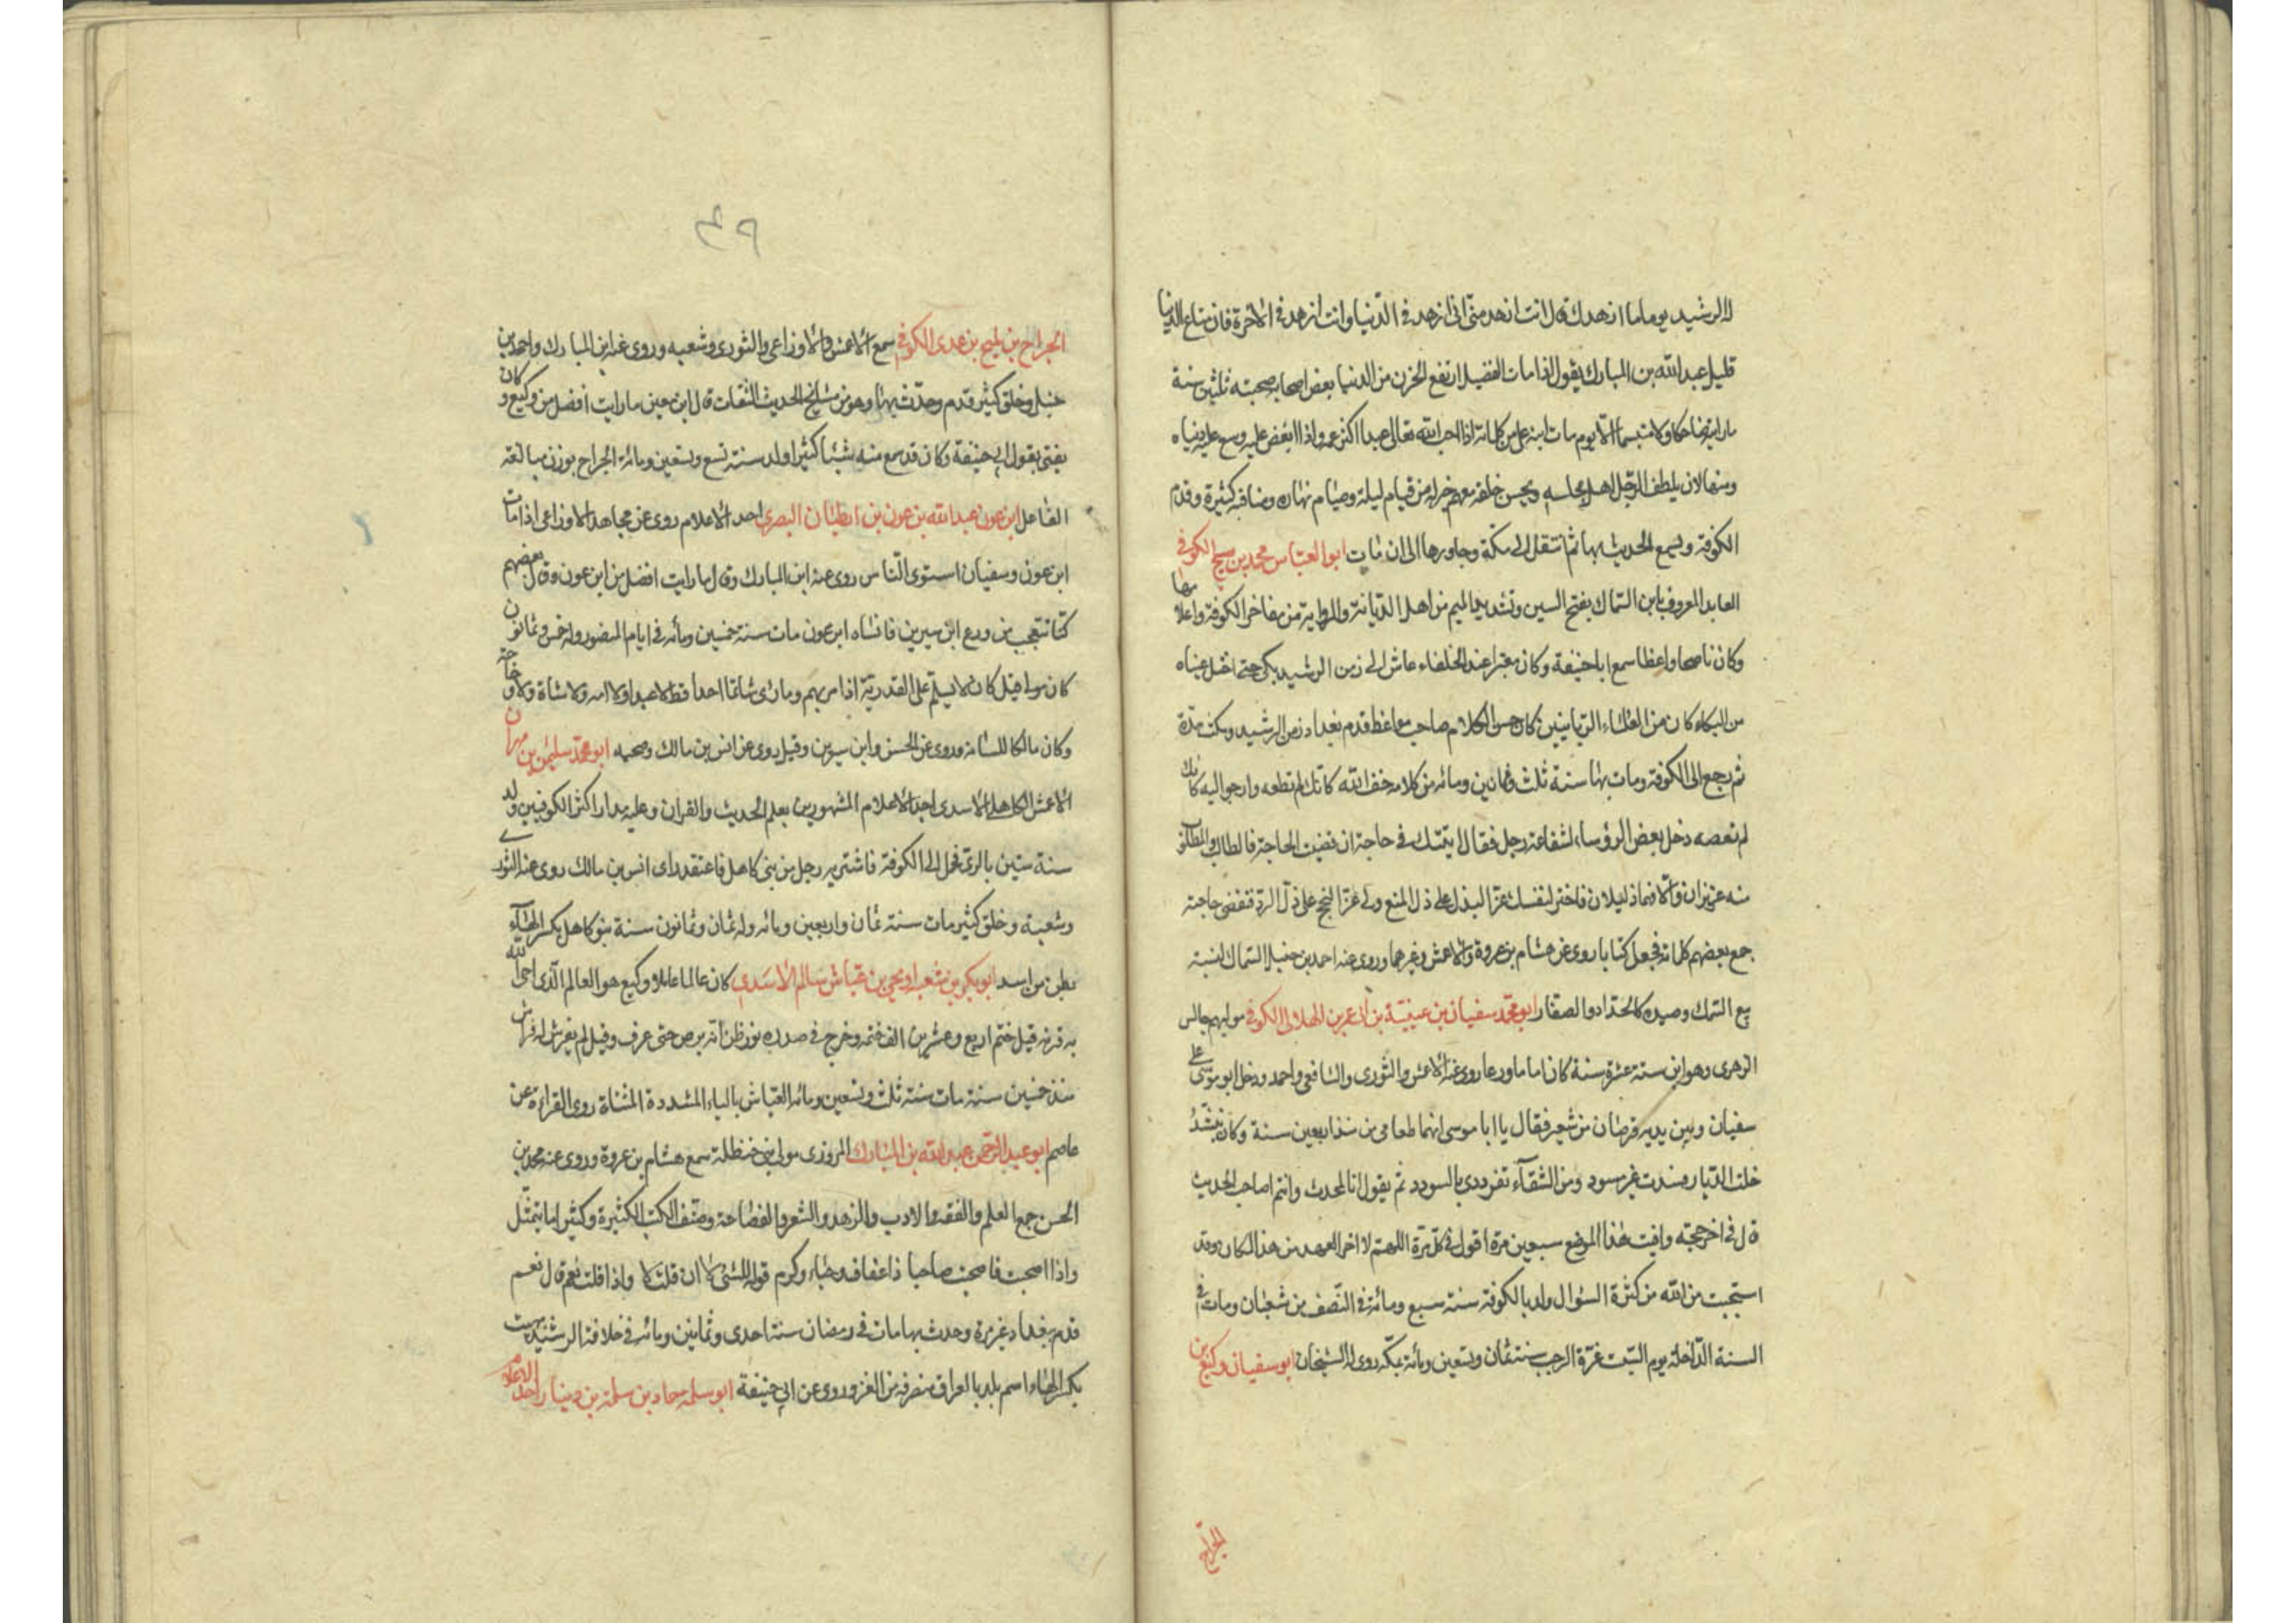 للرشيد يوما ما ازهدك قال انت ازهد منى انى ازهد فى الدنيا وانت ازهد فى الاخرة فان متاع الدنيا
قليل عبد الله بن المبارك يقول اذا مات الفضيل ارتفع الحزن من الدنيا بعض اصحابه صحبته ثلثين سنة
ما رايته ضاحكا ولا متبسما الا يوم مات ابنه على من كلماته اذا احب الله تعالى عبدا اكثر غمه واذا ابغض عليه وسع عليه دنياه
ومنها لان يلطف الرجل اهل مجلسه ويحسن خلقه معهم خير له من قيام ليله وصيام نهاره ومناقبه كثيرة وقدم
الكوفة وسمع الحديث بها ثم انتقل الى مكة وجاورها الى ان مات ابو العباس محمد بن صبيح الكوفى
العابد المعروف بابن السماك بفتح السين وتشديد الميم من اهل الديانة والرواية من مفاخر الكوفة واعلامها
وكان ناصحا واعظا سمع ابا حنيفة وكان معتبرا عند الخلفاء عاش الى زمن الرشيد بكى حتى اختل عيناه
من البكاء كان من العلماء الربانيين كان حسن الكلام صاحب مواعظ قدم بغداد زمن الرشيد ومكث مدة
ثم رجع الى الكوفة ومات بها سنة ثلث وثمانين ومائه من كلامه خف الله كانك لم تطعه وارجو اليه كانك
لم تعصه دخل بعض الرؤساء لشفاعة رجل فقال اتيتك فى حاجة ان قضيت الحاجة فالطالب والمطلوب
منه عزيزان والا فهما ذليلان فاختر لنفسك عز البذل على ذل المنع ولى عز النجح على ذل الرد فقضى حاجته
جمع بعضهم كلماته فجعل كتابا روى عن هشام بن عروة والاعمش وغيرهما وروى عنه احمد بن حنبل السماك لنسبة
بيع السمك وصيده كالحداد والصفار ابو محمد سفيان بن عيينة بن ابى عمرن الهلالى الكوفى مولاهم جالس
الزهرى وهو ابن ستة عشرة سنة كان اماما ورعا روى عنه الاعمش والثورى والشافعى واحمد ودخل ابو موسى على
سفيان وبين يديه قرصان من شعير فقال يا ابا موسى انهما طعامى من منذ اربعين سنة وكان ينشد
خلت الديار فسدت غير مسود ومن الشقآء تفرددى بالسودد ثم يقول انا المحدث وانتم اصاحب الحديث
قال فى اخر حجته وافيت هذا الموضع سبعين مرة اقول فى كل مرة اللهم لا اخر العهد من هذا المكان وقد
استحييت من الله من كثرة السؤال ولد بالكوفة سنة سبع ومائة فى النصف من شعبان ومات فى
السنة الداخلة يوم السبت غرة الرجب سنة ثمان وتسعين ومائة بمكة روى له الشيخان ابو سفيان وكيع بن
الجراح
٤٩
الجراح بن مليح بن عدى الكوفى سمع الاعمش والاوزاعى والثورى وشعبه وروى عنه ابن المبارك واحمد بن
حنبل وخلق كثير قدم وحدث بها وهو من مشايخ الحديث الثقات قال ابن معين ما رايت افضل من وكيع وكان
يفتى بقول ابى حنيفة وكان قد سمع منه شيئا كثيرا ولد سنة تسع وتسعين ومائة الجراح بوزن مبالغة
الفاعل ابن عون عبد الله بن عون بن ارطبان البصرى احد الاعلام روى عن مجاهد الاوزاعى اذا مات
ابن عون وسفيان استوى الناس روى عنه ابن المبارك وقال ما رايت افضل من ابن عون وقال بعضهم
كنا نتعجب من ورع ابن سيرين فانساه ابن عون مات سنة خمسين ومائه فى ايام المنصور وله خمس وثمانون
كان مولى قيل كان لا يسلم على القدرية اذا مر بهم وما رئى شاتما احدا قط لا عبدا ولا امه ولا شاة ولا دجاجة
وكان مالكا للسانه وروى عن الحسن وابن سيرين وقيل روى عن انس بن مالك وصحبه ابو محمد سليمن بن مهران
الاعمش الكاهلى الاسدى احد الاعلام المشهورين بعلم الحديث والقران وعليه مدار اكثر الكوفيين ولد
سنة ستين بالرى فحمل الى الكوفة فاشتريه رجل من بنى كاهل فاعتقه راى انس بن مالك روى عنه الثورى
وشعبة وخلق كثير مات سنة ثمان واربعين ومائه وله ثمان وثمانون سنة بنو كاهل بكسر الهاء
بطن من اسد ابو بكر بن شعبة او يحيى بن عياش سالم الاسدى كان عالما عاملا وكيع هو العالم الذى احيا الله
به قرنه قيل ختم اربع وعشرين الف ختمه وخرج فى صدره نور ظن انه برص حتى عرف وقيل لم يفرش له فراش
منذ خمسين سنة مات سنة ثلث وتسعين ومائه العياش بالياء المشددة المثناة روى القراءة عن
عاصم ابو عبد الرحمن عبد الله بن المبارك المروزى مولى بنى حنظلة سمع هشام بن عروة وروى عنه محمد بن
الحسن جمع العلم والفقه والادب والزهد والشعر والفصاحة وصنف الكتب الكثيرة وكثيرا ما يتمثل
واذا اصحبت فاصحب صاحبا ذا عفاف وحياء وكرم قوله للشئ لا ان قلت لا واذا قلت نعم قال نعم
قدم بغداد غير مرة وحدث بها مات فى رمضان سنة احدى وثمانين ومائه فى خلافة الرشيد بهيت
بكسر الهاء اسم بلد بالعراق منصرفه من الغزو روى عن ابى حنيفة ابو سلمه حماد بن سلمة بن دينار احد الاعلام